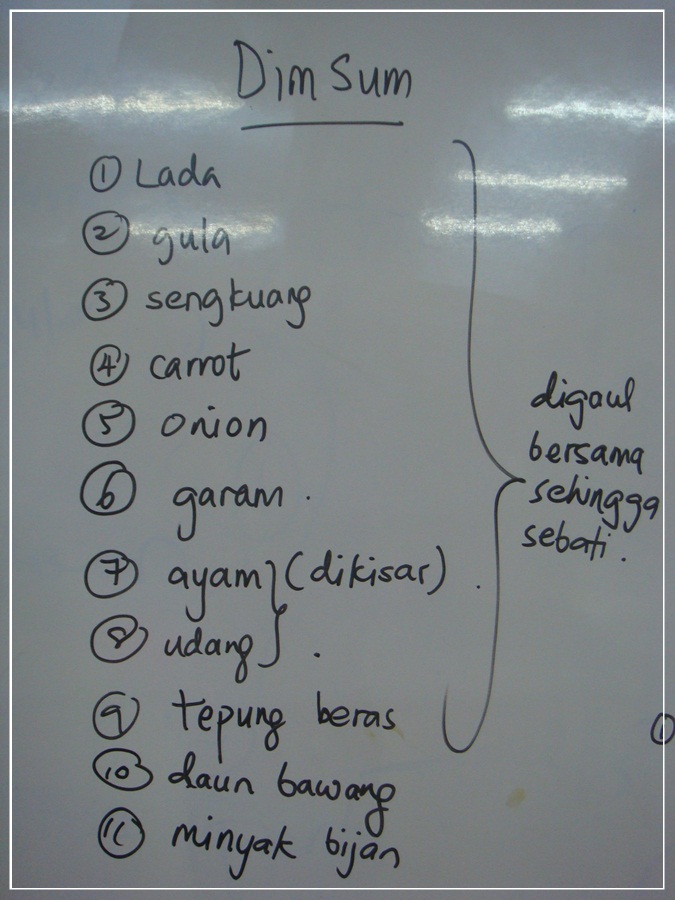 Dim Sum
① Lada
② gula
③ sengkuang
④ carrot
⑤ onion
⑥ garam.
⑦ ayam } (dikisar).
⑧ udang } .
⑨ tepung beras
⑩ daun bawang
⑪ minyak bijan
digaul
bersama
sehingga
sebati.
①